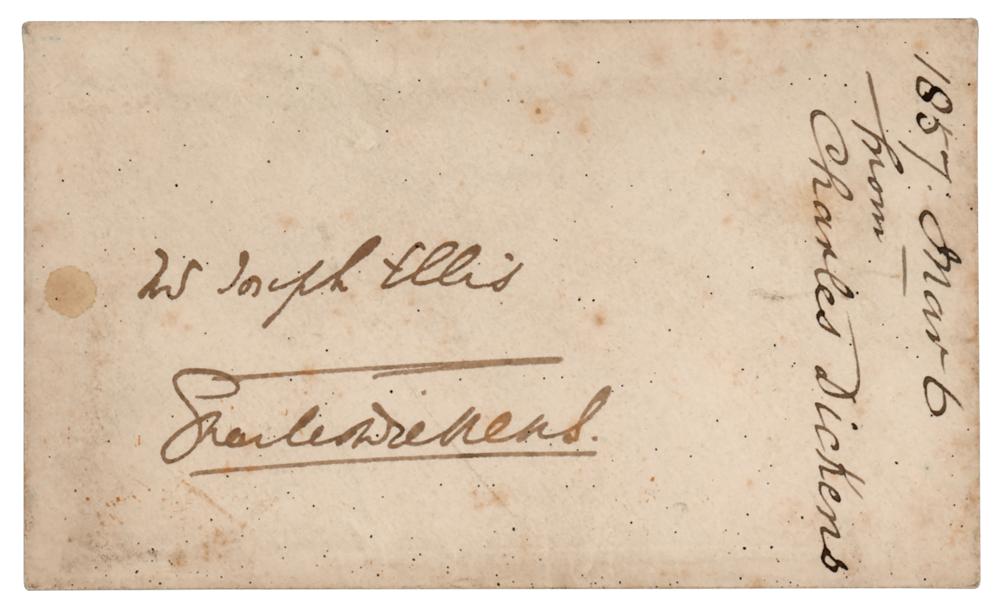 Mr Joseph Ellis
Charles Dickens.
1857. Mar 6
from
Charles Dickens